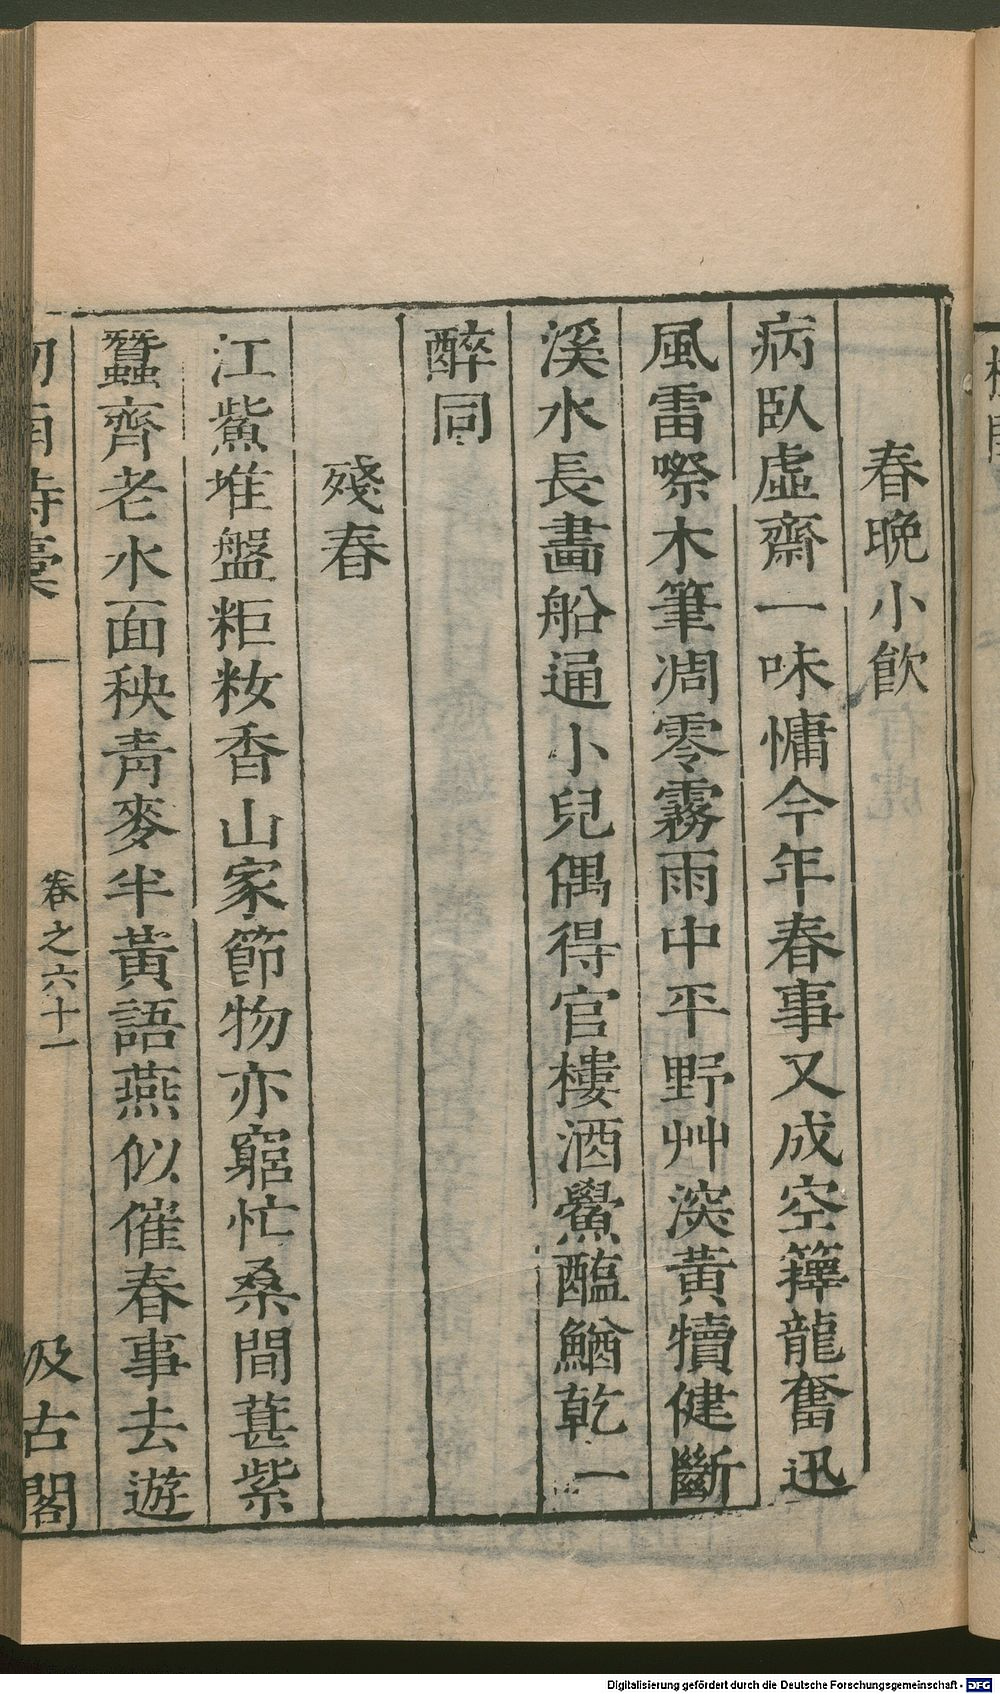 春晚小飲
病臥虛齋一味慵今年春事又成空籜龍奮迅
風雷際木筆凋零霧雨中平野艸深黃犢健斷
溪水長畫船通小兒偶得官樓酒鱟醢鰌乾一
醉同
殘春
江鮆堆盤粔籹香山家節物亦窮忙桑間葚紫
蠶齊老水面秧青麥半黃語燕似催春事去遊
劍南詩藁
卷之六十一
汲古閣
Digitalisierung gefördert durch die Deutsche Forschungsgemeinschaft - DFG